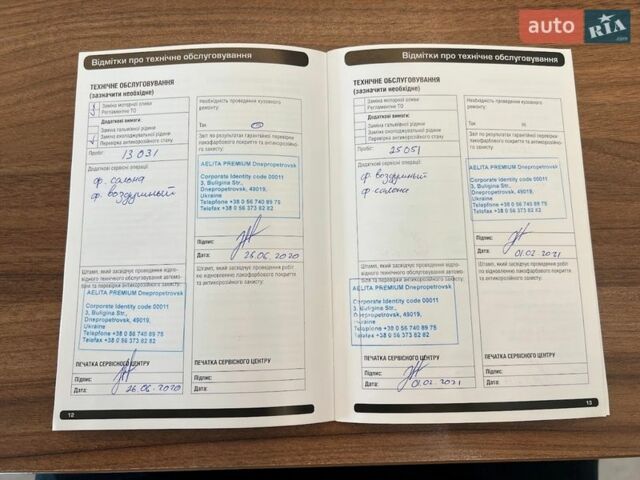 auto RIA.com
Відмітки про технічне обслуговування
ТЕХНІЧНЕ ОБСЛУГОВУВАННЯ
(зазначити необхідне)
Заміна моторної оливи
Регламентне ТО
Додаткові вимоги:
Заміна гальмівної рідини
Заміна охолоджувальної рідини
Перевірка антикорозійного стану
Пробіг: 13 031
Додаткові сервісні операції:
ф. салона
ф. воздушный
Штамп, який засвідчує проведення відпо-
відного технічного обслуговування автомо-
біля та перевірки антикорозійного захисту
AELITA PREMIUM Dnepropetrovsk
Corporate Identity code 00011
3, Buligina Str.,
Dnepropetrovsk, 49019,
Ukraine
Telephone +38 0 56 740 89 75
Telefax +38 0 56 373 82 82
ПЕЧАТКА СЕРВІСНОГО ЦЕНТРУ
Підпис:
Дата: 26.06.2020
12
Необхідність проведення кузовного
ремонту:
Так
Звіт по результатах гарантійної перевірки
лакофарбового покриття та антикорозійно-
го захисту:
AELITA PREMIUM Dnepropetrovsk
Corporate Identity code 00011
3, Buligina Str.,
Dnepropetrovsk, 49019,
Ukraine
Telephone +38 0 56 740 89 75
Telefax +38 0 56 373 82 82
Підпис:
Дата: 26.06.2020
Штамп, який засвідчує проведення робіт
по відновленню лакофарбового покриття та
антикорозійного захисту.
ПЕЧАТКА СЕРВІСНОГО ЦЕНТРУ
Підпис:
Дата:
Відмітки про технічне обслуговування
ТЕХНІЧНЕ ОБСЛУГОВУВАННЯ
(зазначити необхідне)
Заміна моторної оливи
Регламентне ТО
Додаткові вимоги:
Заміна гальмівної рідини
Заміна охолоджувальної рідини
Перевірка антикорозійного стану
Пробіг: 25051
Додаткові сервісні операції:
ф воздушный
ф салона
Штамп, який засвідчує проведення відпо-
відного технічного обслуговування автомо-
біля та перевірки антикорозійного захисту
AELITA PREMIUM Dnepropetrovsk
Corporate Identity code 00011
3, Buligina Str.,
Dnepropetrovsk, 49019,
Ukraine
Telephone +38 0 56 740 89 75
Telefax +38 0 56 373 82 82
ПЕЧАТКА СЕРВІСНОГО ЦЕНТРУ
Підпис:
Дата: 01.02.2021
Необхідність проведення кузовного
ремонту:
Так Ні
Звіт по результатах гарантійної перевірки
лакофарбового покриття та антикорозійно-
го захисту:
AELITA PREMIUM Dnepropetrovsk
Corporate Identity code 00011
3, Buligina Str.,
Dnepropetrovsk, 49019,
Ukraine
Telephone +38 0 56 740 89 75
Telefax +38 0 56 373 82 82
Підпис:
Дата: 01.02.2021
Штамп, який засвідчує проведення робіт
по відновленню лакофарбового покриття та
антикорозійного захисту.
ПЕЧАТКА СЕРВІСНОГО ЦЕНТРУ
Підпис:
Дата:
13